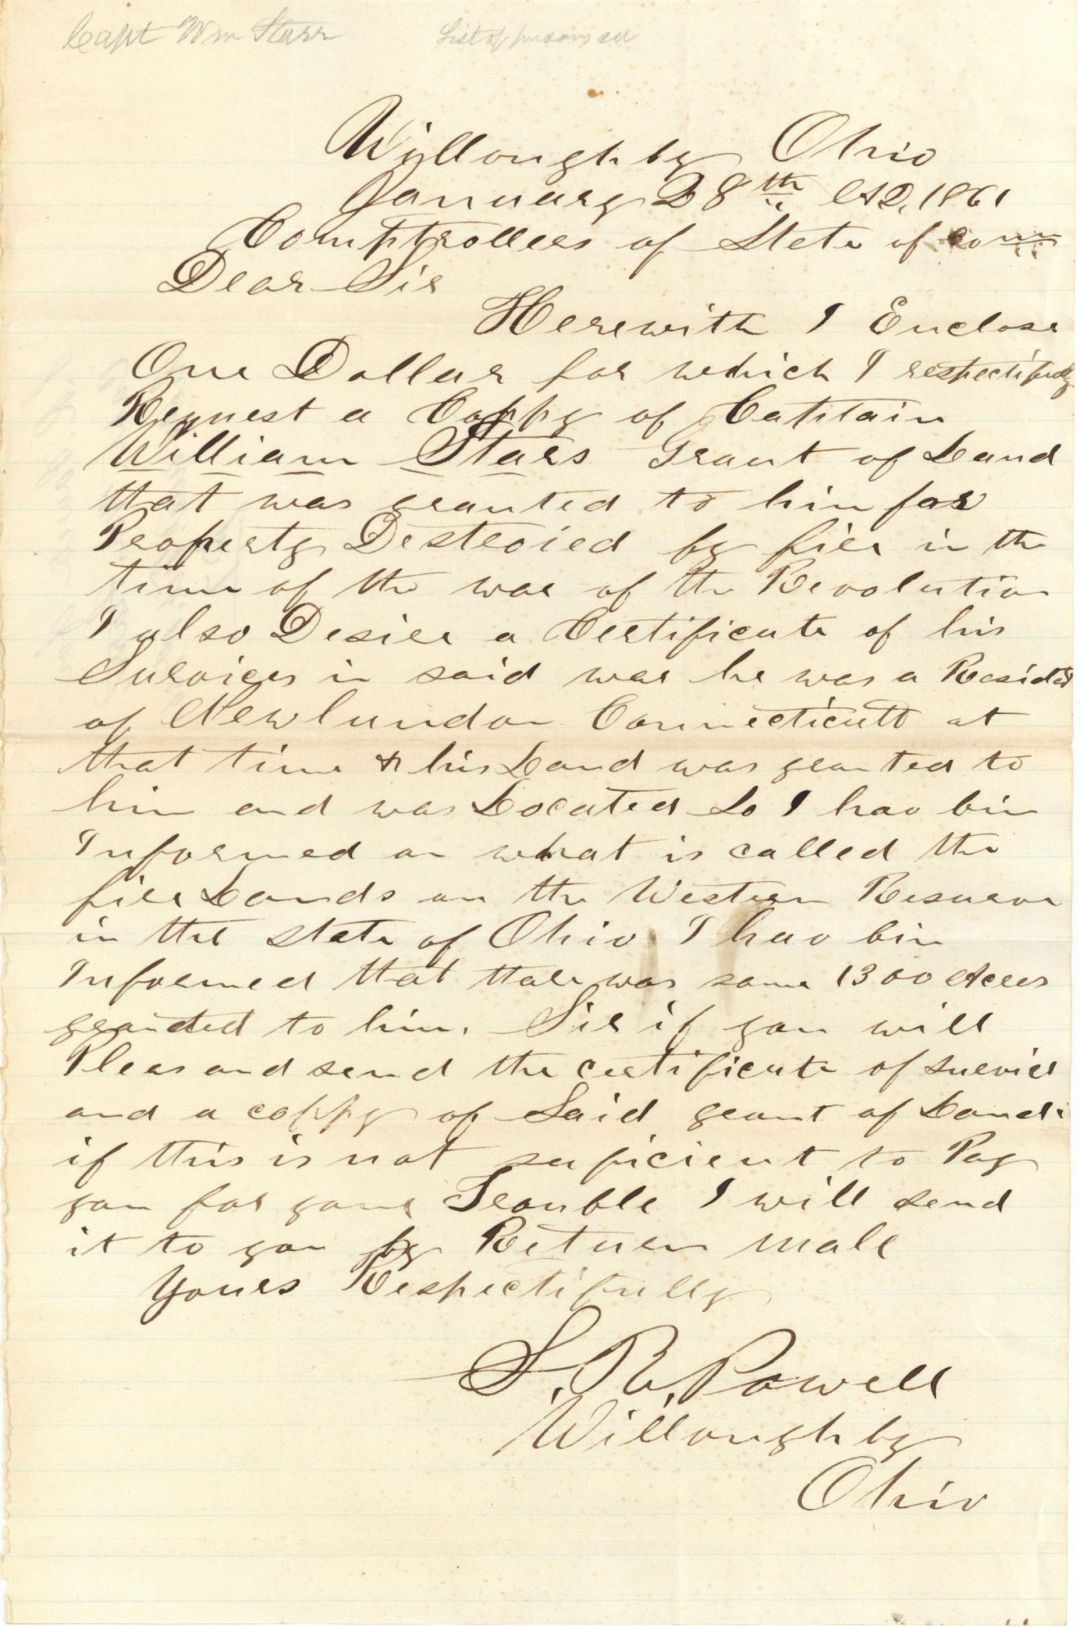 Capt Wm Starr List of persons &c
Willoughby Ohio
January 28th AD, 1861
Comptrollers of State of Conn
Dear Sir
Herewith I Enclose
One Dollar for which I respectifully
Request a Coppy of Captain
William Stars Grant of Land
that was granted to him for
Property Destroied by fier in the
time of the war of the Revolution
I also Desire a Certificate of his
Survices in said war he was a Resident
of Newlundon Connecticutt at
that time & his Land was granted to
him and was Located So I hav bin
Informed on what is called the
fier Lands on the Western Resurve
in the state of Ohio I hav bin
Informed that thare was some 1300 Acers
granted to him. Sir if you will
Pleas and send the certificate of survice
and a coppy of Said grant of Land
if this is not suficient to Pay
you for your Trouble I will send
it to you by Return male
Yours Respectifully
S. R. Powell
Willoughby
Ohio